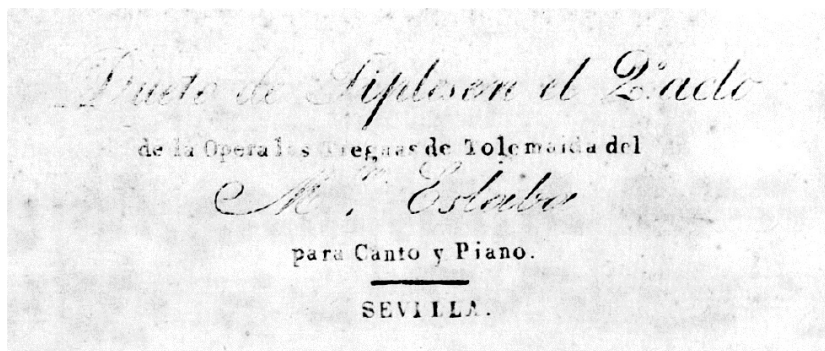 Dueto de Tiples en el 2º acto
de la Opera las Treguas de Tolemaida del
M.ᵗʳᵒ Eslaba
para Canto y Piano.
SEVILLA.